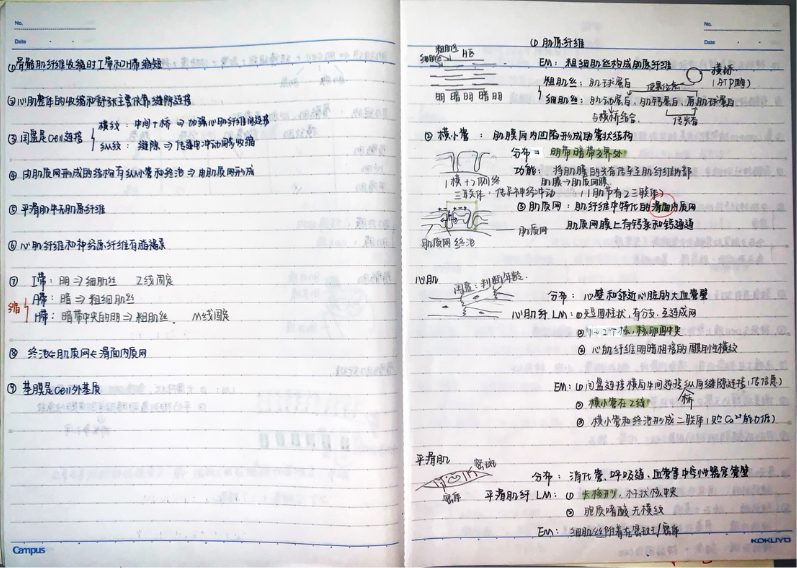 No.
Date
① 骨骼肌纤维收缩时I带和H带缩短
② 心肌整体的收缩和舒张主要依靠缝隙连接
③ 闰盘是Cell连接
横纹：中间+桥 ⇒ 加强心肌纤维间连接
纵纹：缝隙 ⇒ 传递冲动同步收缩
④ 由肌质网形成的结构有纵小管和终池 ⇒ 由肌质网形成
⑤ 平滑肌中无肌原纤维
⑥ 心肌纤维和神经原纤维有脂褐素
⑦ I带：明 ⇒ 细肌丝 Z线固定
A带：暗 ⇒ 粗细肌丝
H带：暗带中央的明 ⇒ 粗肌丝、 M线固定
缩
⑧ 终池∈肌质网∈滑面内质网
⑨ 基膜是Cell外基质
Campus
No.
Date
① 肌原纤维
粗肌丝
细肌丝
EM：粗细肌丝构成肌原纤维
粗肌丝：肌球蛋白
横桥
(ATP酶)
细肌丝：肌动蛋白，肌钙蛋白，原肌球蛋白
与横桥结合
明暗明暗明
② 横小管：肌膜向内凹陷形成的管状结构
分布：明带暗带交界处
功能：将肌膜的兴奋传至肌纤维内部
1横+2终池
三联体：
(1肌节有2三联体)
③ 肌质网：肌纤维中特化的滑面内质网
肌质网膜上有钙泵和钙通道
肌质网
肌质网 终池
心肌
闰盘：判断年龄.
分布：心壁和邻近心脏的大血管壁
心肌纤 LM：① 短圆柱状，有分支，互连成网
② 1~2个核，核卵圆中央
③ 心肌纤维明暗相间的周期性横纹
EM：① 闰盘连接横向中间连接纵向缝隙连接(传信息)
桥
② 横小管在Z线
③ 横小管和终池形成二联体
平滑肌
密斑
密体
分布：消化管、呼吸道、血管等中空性器官管壁
平滑肌纤 LM：① 长梭形，杆状核中央
② 胞质嗜酸 无横纹
EM：细肌丝附着在密斑/密体
KOKUYO